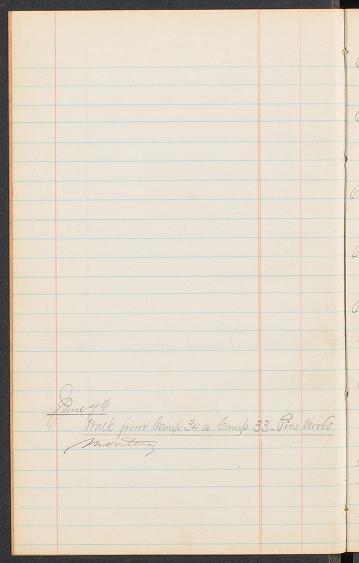 June 7th
Walk from Camp 34 to Camp 33 - Pine Woods
Monterey